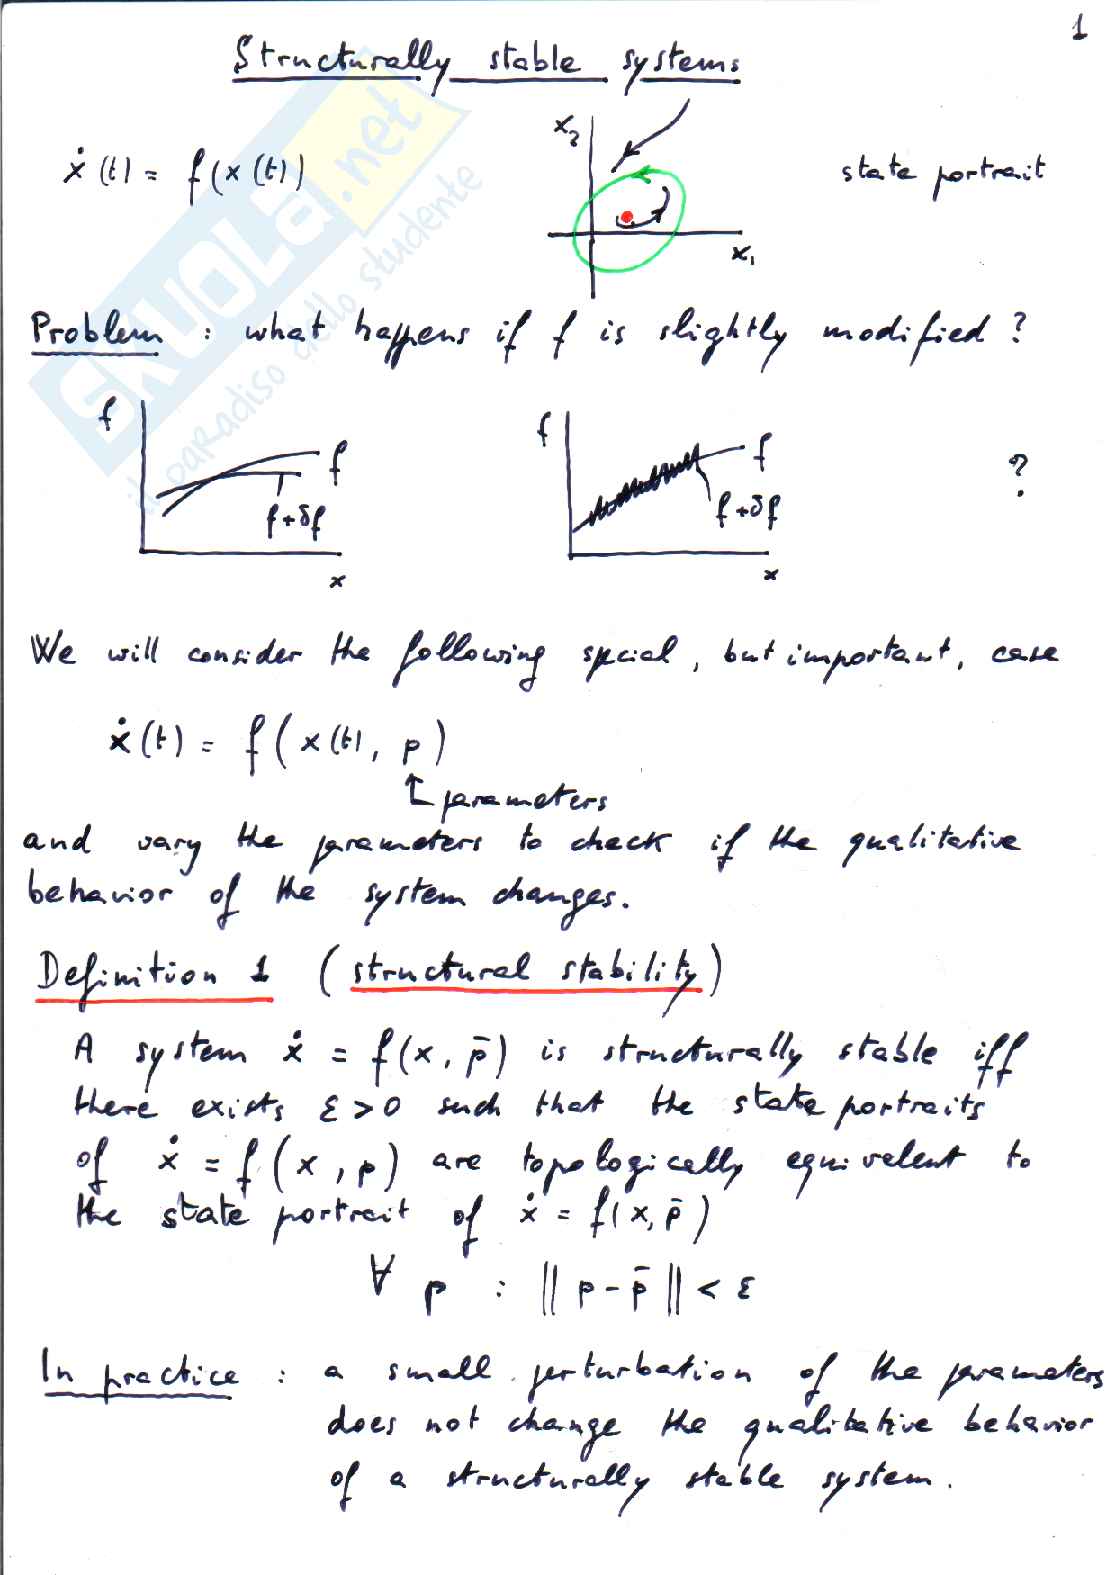 1
Structurally stable systems
ẋ(t) = f(x(t)
x₂
x₁
state portrait
Problem : what happens if f is slightly modified ?
f
f
f+δf
x
f
f
f+δf
x
?
We will consider the following special, but important, case
ẋ(t) = f(x(t), p)
parameters
and vary the parameters to check if the qualitative
behavior of the system changes.
Definition 1 (structural stability)
A system ẋ = f(x, p̄) is structurally stable iff
there exists ε>0 such that the state portraits
of ẋ = f(x, p) are topologically equivalent to
the state portrait of ẋ = f(x, p̄)
∀ p : || p - p̄ || < ε
In practice : a small perturbation of the parameters
does not change the qualitative behavior
of a structurally stable system.
SKUOLA.net
il paradiso dello studente